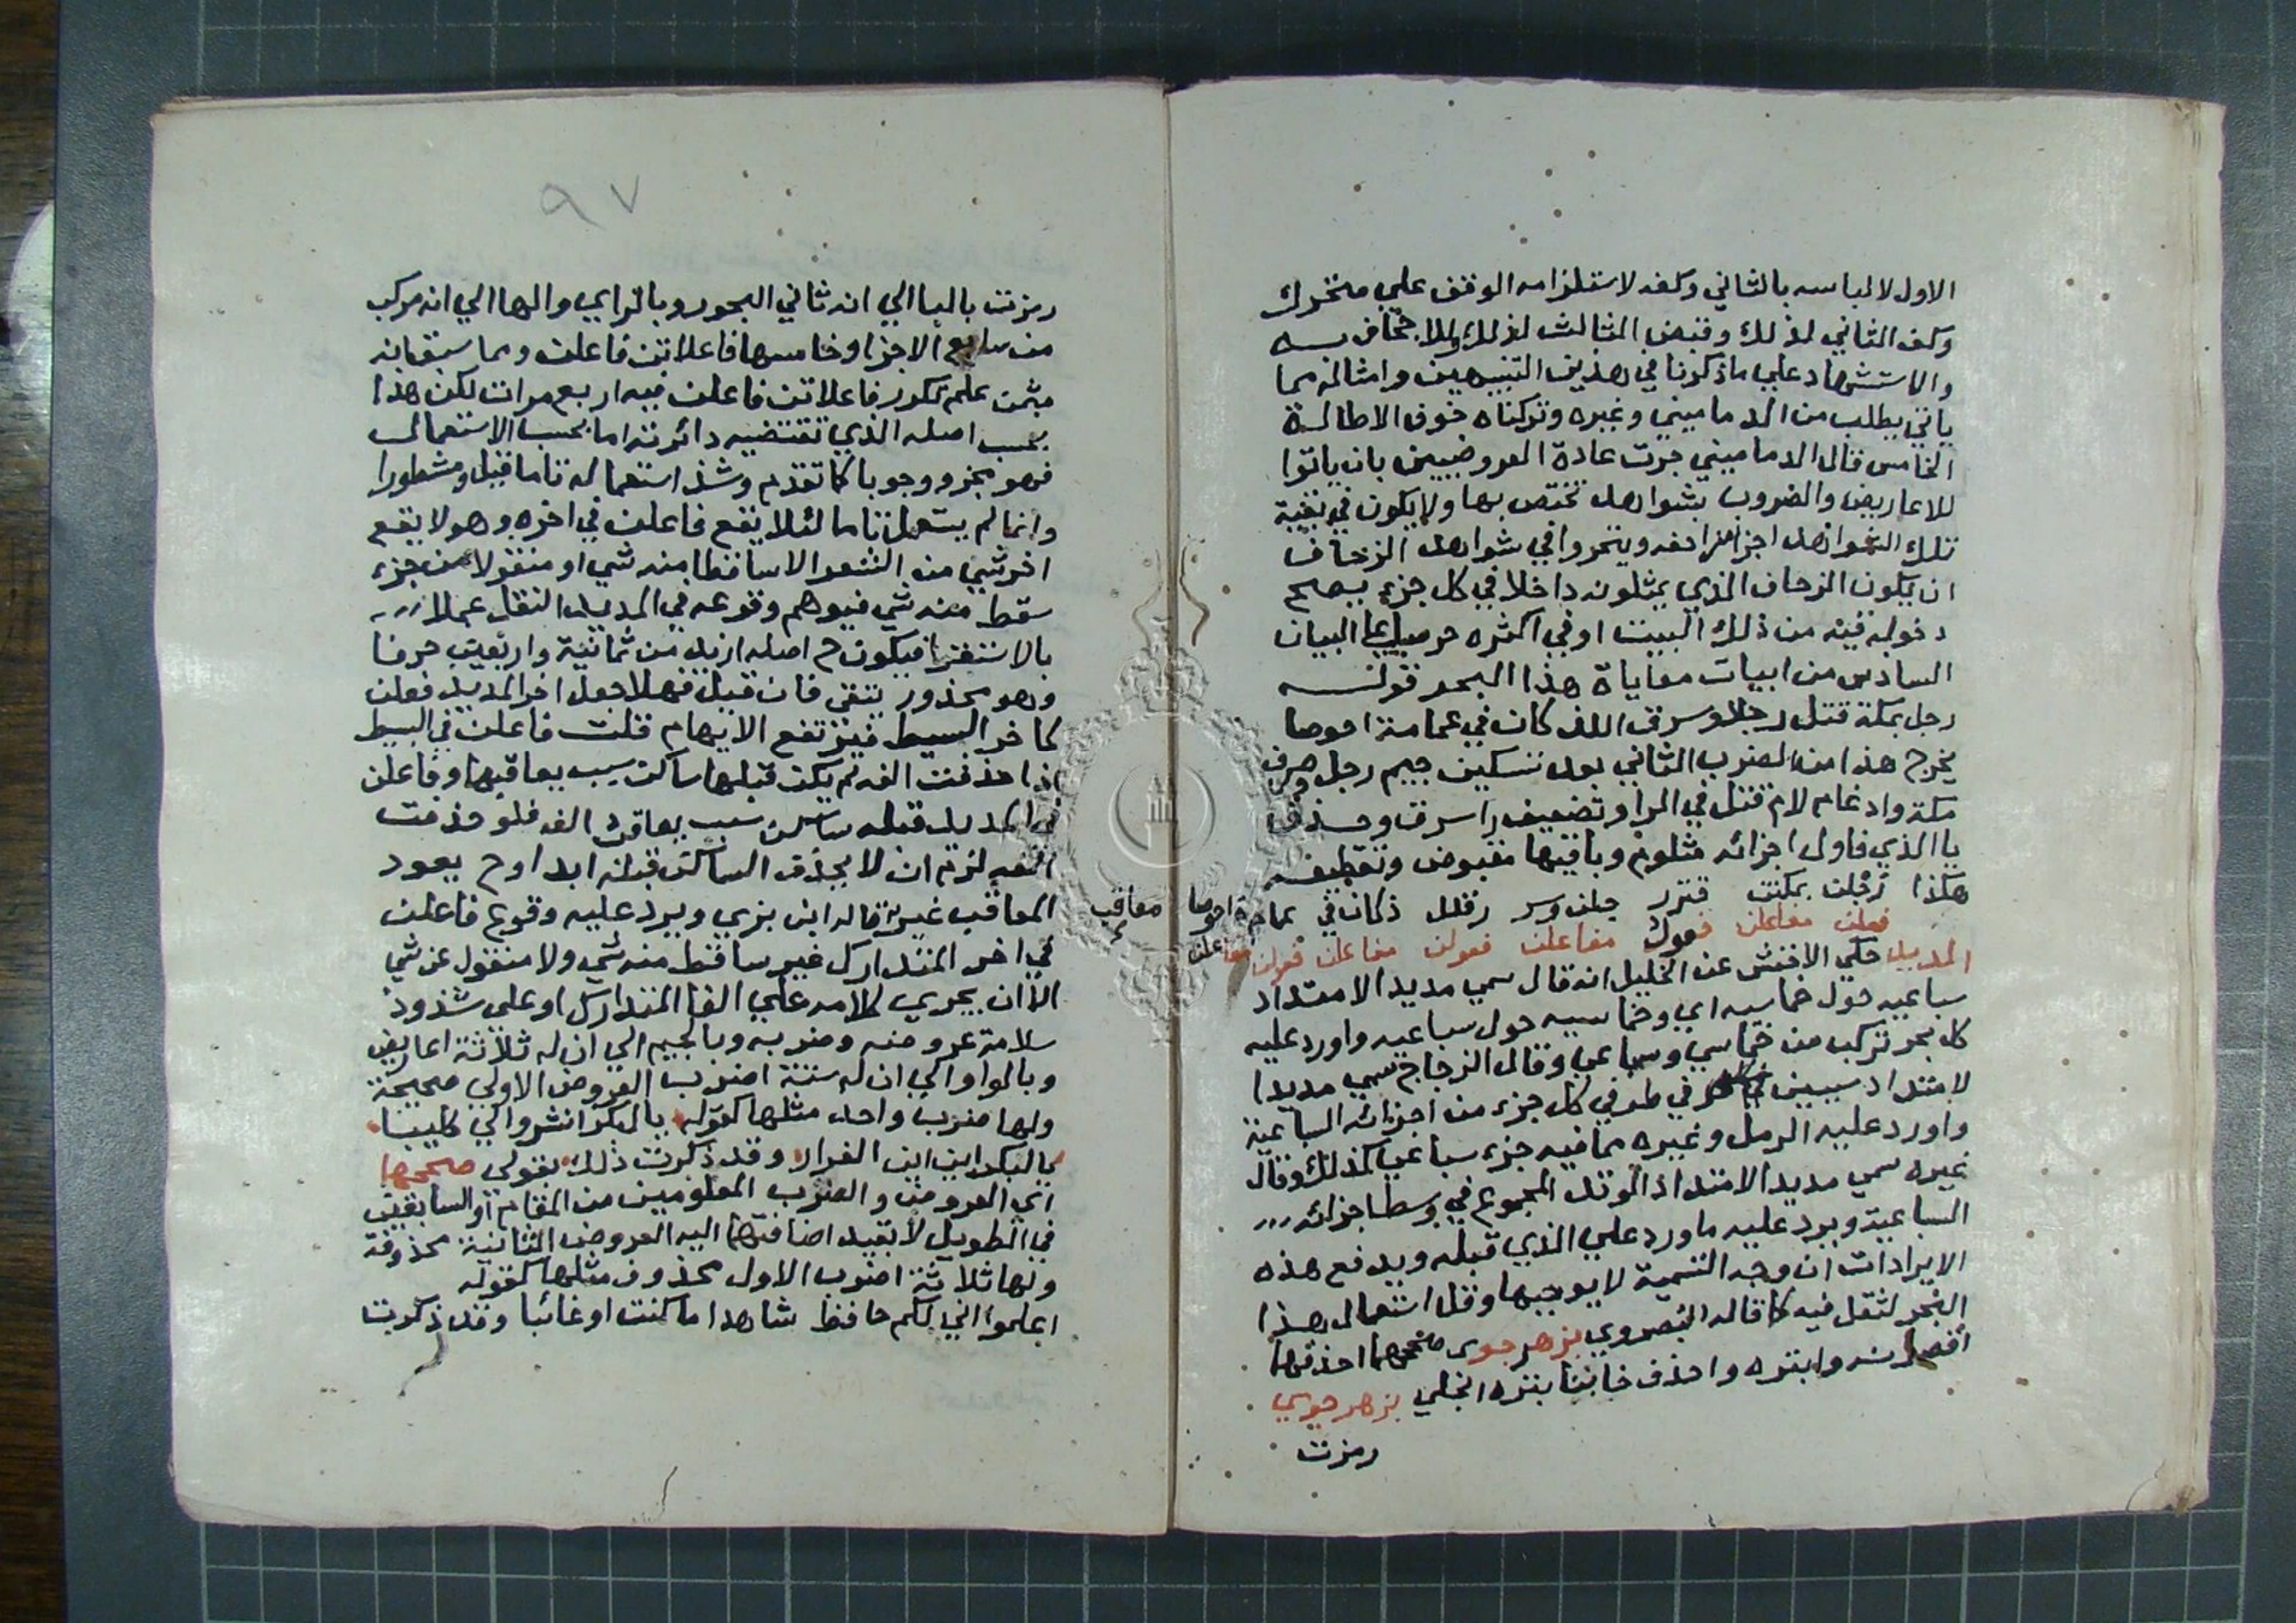 الاول لالباسه بالثاني وكفه لاستلزامه الوقف علي متحرك
وكف الثاني لذلك وقبض الثالث لذلك وللاجحاف به
والاستشهاد علي ماذكرنا في هذين التنبيهين وامثاله مما
ياتي يطلب من الدماميني وغيره وتركناه خوف الاطالة
الخامس قال الدماميني جرت عادة العروضيين بان ياتوا
للاعاريض والضروب بشواهد تختص بها ولا يكون في بقية
تلك الشواهد اجزا مزاحفه ويتحروا في شواهد الزحاف
ان يكون الزحاف الذي يمثلونه داخلا في كل جزء يصح
دخوله فيه من ذلك البيت او في اكثره حرصا علي البيان
السادس من ابيات معاياة هذا البحر قوله
رجل بمكة قتل رجلا وسرق اللذ كان في عمامة احوصا
يخرج هذا من الضرب الثاني بعد تسكين جيم رجل وصرف
مكة وادغام لام قتل في الرا وتضعيف را سرق وحذف
يا الذي فاول اجزائه مثلوم وباقيها مقبوض وتقطيعه
هكذا رجلن بمكتن قتر رجلن وسر رقلل ذكان في عمامة احوصا
فعلن مفاعلن فعول مفاعلن فعولن مفاعلن فعولن مفاعلن
المديد حكي الاخفش عن الخليل انه قال سمي مديدا لامتداد
سباعيه حول خماسيه اي وخماسيه حول سباعيه واورد عليه
كل بحر تركب من خماسي وسباعي وقال الزجاج سمي مديدا
لامتداد سببين في طرفي كل جزء من اجزائه السباعية
واورد عليه الرمل وغيره مما فيه جزء سباعي كذلك وقال
غيره سمي مديدا لامتداد الوتد المجموع في وسط اجزائه
السباعية ويرد عليه ما ورد علي الذي قبله ويدفع هذه
الايرادات ان وجه التسمية لا يوجبها وقل استعمال هذا
البحر لثقل فيه كما قاله البصروي بزهر جوى صححهما احذفهما
اقصرنه وابتره واحذف خابنا بتره انجلي بزهر جوي
رمزت
٩٧
رمزت بالبا الي انه ثاني البحور وبالزاي والها الي انه مركب
من سابع الاجزا وخامسها فاعلاتن فاعلن ومما سبق بانه
مثمن علم تكرر فاعلاتن فاعلن فيه اربع مرات لكن هذا
بحسب اصله الذي تقتضيه دائرته اما بحسب الاستعمال
فهو مجزو وجوبا كما تقدم وشذ استعماله تاما قيل ومشطورا
وانما لم يستعمل تاما لئلا يقع فاعلن في اخره وهو لا يقع
اخر شي من الشعر الا ساقطا منه شي او منقولا من جزء
سقط منه شي فيوهم وقوعه في المديد النقل عملا
بالاستقرا فيكون ح اصله ازيد من ثمانية واربعين حرفا
وهو محذور يتقى فان قيل فهلا جعل اخر المديد فعلن
كاخر البسيط فيرتفع الايهام قلت فاعلن في البسيط
اذا حذفت الفه لم يكن قبلها ساكن سبب يعاقبها وفاعلن
في المديد قبله ساكن سبب يعاقب الفه فلو حذفت
الفه لزم ان لا يحذف الساكن قبله ابدا وح يعود
المعاقب غير معاقب قاله ابن بري ويرد عليه وقوع فاعلن
في اخر المتدارك غير ساقط منه شي ولا منقول عن شي
الا ان يجري كلامه علي الفا المتدارك او على شذوذ
سلامة عروضه وضربه وبالجيم الي ان له ثلاثة اعاريض
وبالواو الي ان له ستة اضرب العروض الاولي صحيحة
ولها ضرب واحد مثلها كقوله يا لبكر انشروا لي كليبا
يا لبكر اين اين الفرار وقد ذكرت ذلك بقولي صححهما
اي العروض والضرب المعلومين من المقام او السابقين
في الطويل لا بقيد اضافتهما اليه العروض الثانية محذوفة
ولها ثلاثة اضرب الاول محذوف مثلها كقوله
اعلموا اني لكم حافظ شاهدا ما كنت او غائبا وقد ذكرت